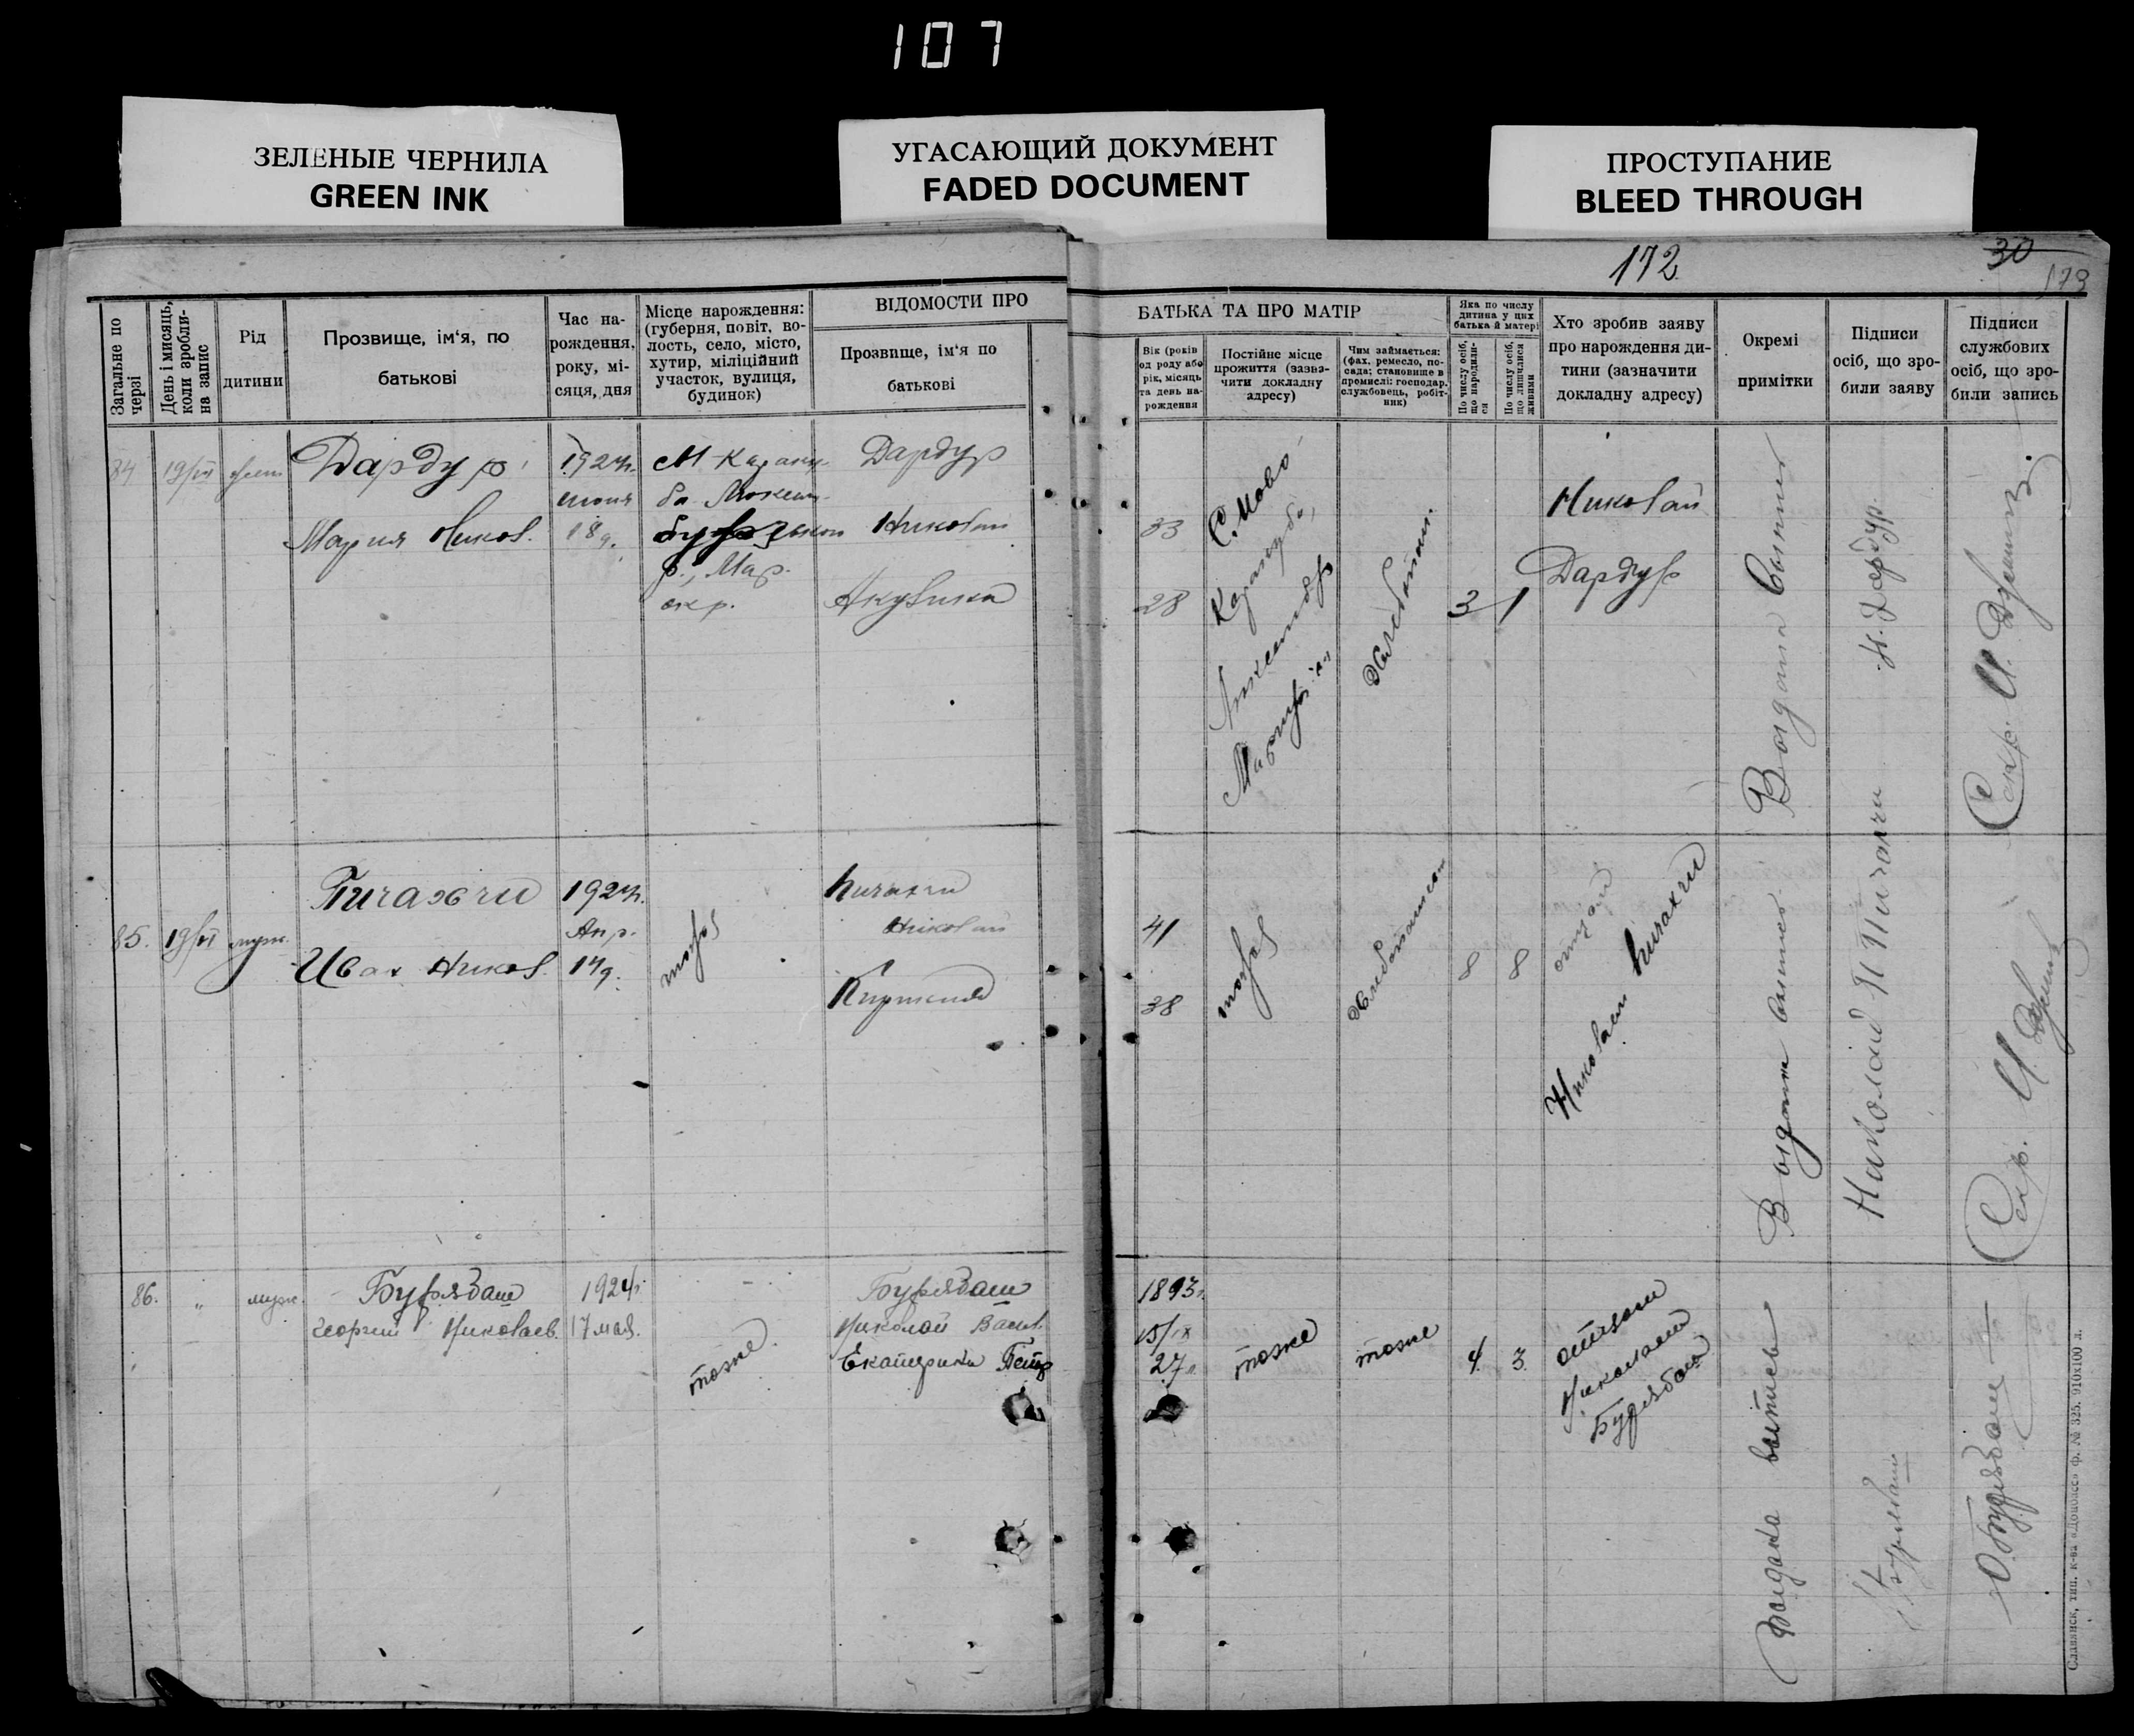 107
ЗЕЛЕНЫЕ ЧЕРНИЛА
GREEN INK
УГАСАЮЩИЙ ДОКУМЕНТ
FADED DOCUMENT
ПРОСТУПАНИЕ
BLEED THROUGH
172
30
173
Загальне по черзі
День і мисяць, коли зробли-на запис
Рід
дитини
Прозвище, ім‘я, по
батькові
Час на-
рождення,
року, мі-
сяця, дня
Місце нарождення:
(губерня, повіт, во-
лость, село, місто,
хутир, міліційний
участок, вулиця,
будинок)
ВІДОМОСТИ ПРО
Прозвище, ім‘я по
батькові
БАТЬКА ТА ПРО МАТІР
Вік (років
од роду або
рік, місяць
та день на-
рождення
Постійне місце
прожиття (зазна-
чити докладну
адресу)
Чим займається:
(фах, ремесло, по-
сада; становище в
промислі: господар,
службовець, робіт-
ник)
Яка по числу
дитина у цих
батька й матері
По числу осіб,
що народили-
ся
По числу осіб,
що лишилися
живими
Хто зробив заяву
про нарождення ди-
тини (зазначити
докладну адресу)
Окремі
примітки
Підписи
осіб, що зро-
били заяву
Підписи
службових
осіб, що зро-
били запись
84
19/VI
жен
Дардур
Мария Никол.
1924г.
июня
18 д.
р., Мар.
окр.
Дардур
Николай
Акулина
33
28
С. Ново
Хлебопаш.
3
1
Николай
Дардур
Выдана выпись
Н. Дардур
Секр. И.
85.
19/VI
муж.
Пичахчи
Иван Никол.
1924г.
Апр.
14 д.
тоже
Пичахчи
Николай
41
38
тоже
Хлебопашец
8
8
отцом
Николаем Пичахчи
Выдана выпись
Николай Пичахчи
Секр. И.
86.
"
муж.
Бурлбаш
Георгий Николаев.
1924г.
17 мая.
тоже
Бурлбаш
Николай Васил.
Екатерина Петр
1893г.
15/IX
27л.
тоже
тоже
4
3
отцом
Николаем
Бурлбаш
Выдана выпись
Бурлбаш
Славянск, тип. к-ва «Допомога» ф. № 325. 910х100 л.